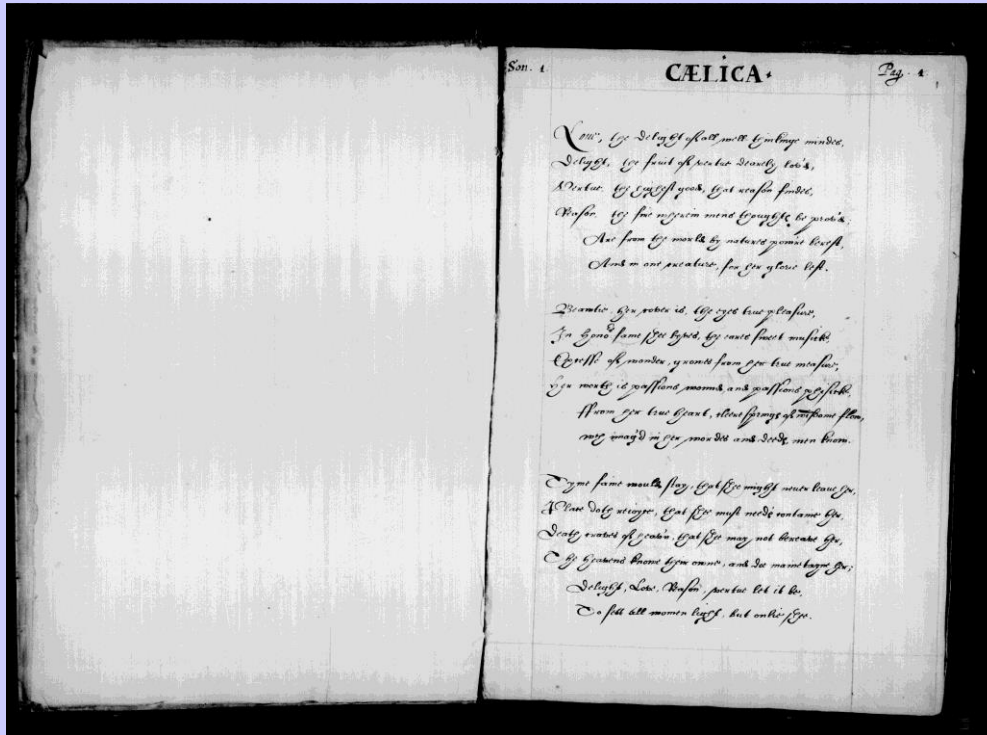 Son. 1. CÆLICA. Pag. 1
Love, the delight of all well thinkinge mindes,
Delight, the fruit of vertue dearely lov'd,
Vertue, the highest good, that reason findes,
Reason, the fire wherein mens thoughts be prov'd,
Are from the world by natures power bereft,
And in one creature, for her glorie left.
Beautie, her cover is, the eyes true pleasure,
In hono:r fame shee lyves, the eares sweet musicke,
Excesse of wonder, growes from her true measure,
Her worth is passions wound, and passions phisicke,
ffrom her true heart, cleere springs of wisdome flow,
wch imag'd in her wordes and deeds, men know.
Tyme faine would stay, that shee might never leave her,
Place doth reioyce, that shee must needs containe her,
Death craves of heav'n, that shee may not bereave her,
The heavens knowe their owne, and doe maintayne her;
Delight, Love, Reason, vertue let it be,
To sett all women light, but onlie shee.